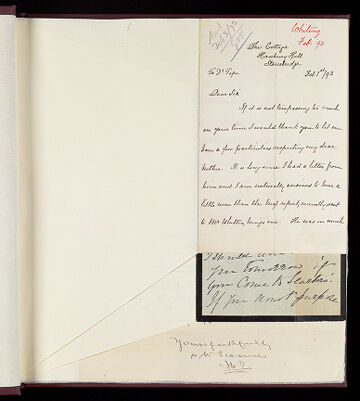 Ansd
24/2/93
Whiting
Feb. 93
The Cottage
Hanbury Hill
Stourbridge
To Dr Pope. Feb 1st/93
Dear Sir
If it is not trespassing too much
on your time I would thank you to let me
have a few particulars respecting my dear
brother. It is long since I had a letter from
him and I am naturally anxious to know a
little more than the brief report, usually sent
to Mr Whitting brings me. He was so much
I should
you tomorrow if
you come to
If you do not purpose
Yours faithfully